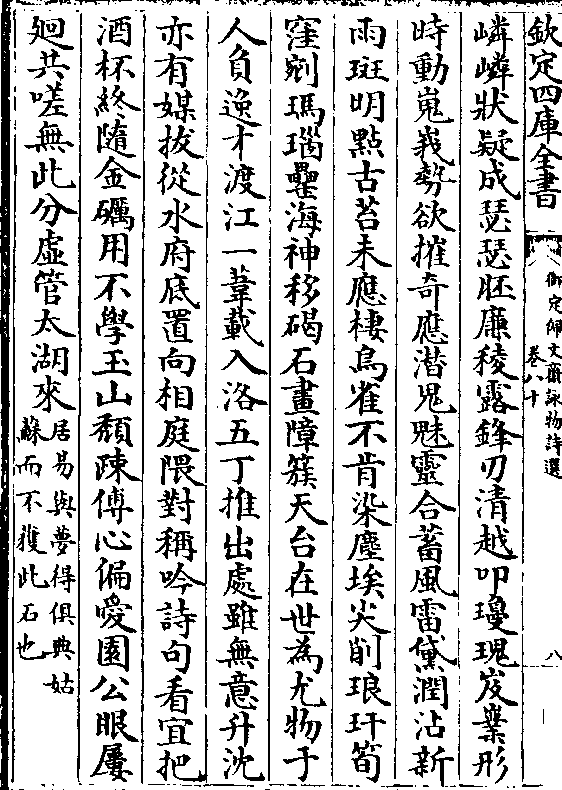 欽定四庫全書
御定佩文齋詠物詩選
卷八十
八
嶙嶙狀疑成瑟瑟胚廉稜露鋒刃清越叩瓊瑰岌嶪形
時動嵬峩勢欲摧奇應潛鬼魅靈合蓄風雷黛潤沾新
雨斑明點古苔未應棲鳥雀不肯染塵埃尖削琅玕筍
窪剜瑪瑙罍海神移碣石畫障簇天台在世為尤物于
人負逸才渡江一葦載入洛五丁推出處雖無意升沈
亦有媒拔從水府底置向相庭隈對稱吟詩句看宜把
酒杯終隨金礪用不學玉山頹疎傅心偏愛園公眼屢
廻共嗟無此分虛管太湖來居易與夢得俱典姑
蘇而不獲此石也